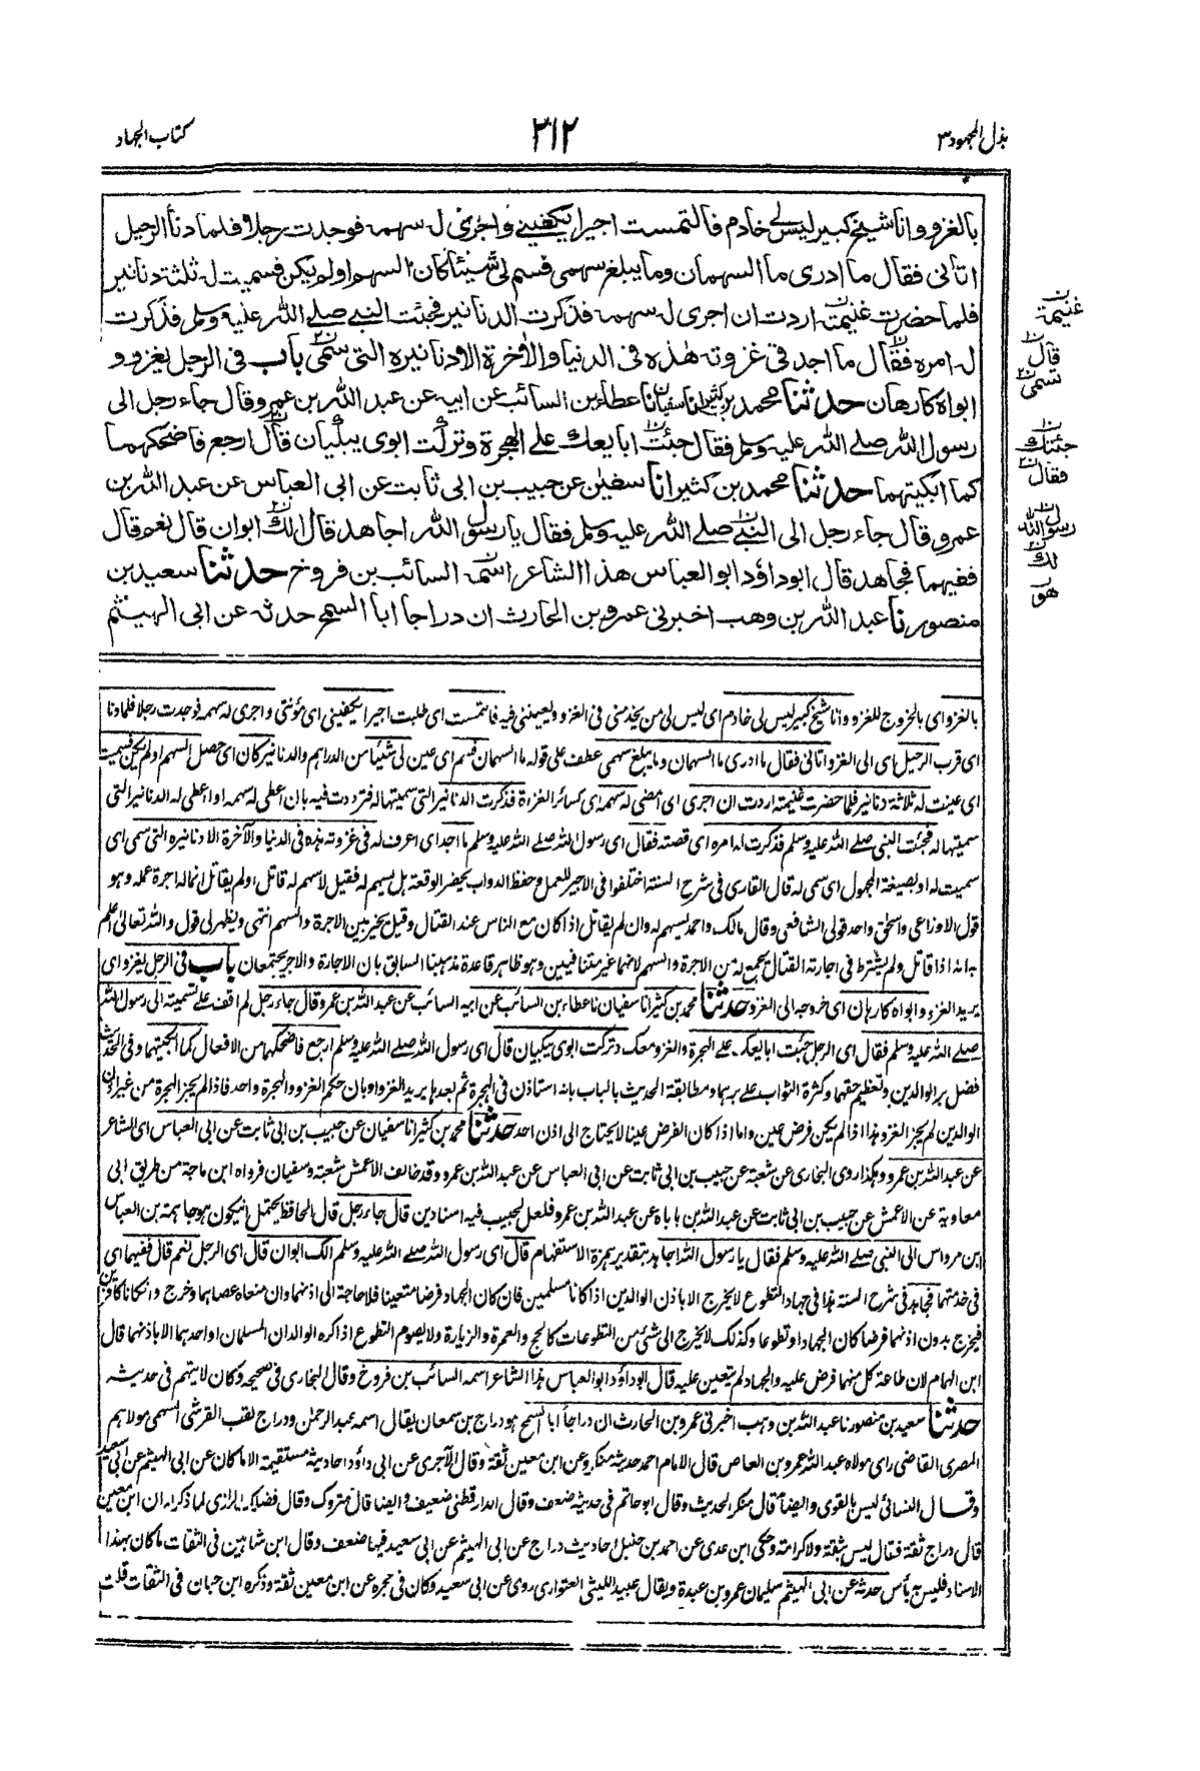 بذل المجهود ٣
٢١٢
كتاب الجهاد
بالغزو وانا شيخ كبير ليس لي خادم فالتمست اجيرا يكفيني واجري له سهمه فوجدت رجلا فلما دنا الرحيل
اتاني فقال ما ادري ما السهمان وما يبلغ سهمي فسم لي شيئا كان السهم اولم يكن فسميت له ثلثة دنانير
فلما حضرت غنيمته اردت ان اجري له سهمه فذكرت الدنانير فجئت النبي صلے الله عليه وسلم فذكرت
له امره فقال ما اجد في غزوته هذه في الدنيا والاٰخرة الا دنانيره التي سمى باب في الرجل يغزو و
ابواه كارهان حدثنا محمد بن كثير انا سفيان نا عطاء بن السائب عن ابيه عن عبد الله بن عمرو قال جاء رجل الى
رسول الله صلے الله عليه وسلم فقال جئت ابايعك علے الهجرة وتركت ابوي يبكيان قال ارجع فاضحكهما
كما ابكيتهما حدثنا محمد بن كثير انا سفيٰن عن حبيب بن ابي ثابت عن ابي العباس عن عبد الله بن
عمرو قال جاء رجل الى النبي صلے الله عليه وسلم فقال يا رسول الله اجاهد قال الك ابوان قال نعم قال
ففيهما فجاهد قال ابو داؤد ابو العباس هذا الشاعر اسمه السائب بن فروخ حدثنا سعيد بن
منصور نا عبد الله بن وهب اخبرني عمرو بن الحارث ان دراجا ابا السمح حدثه عن ابي الهيثم
غنيمة
قال
تسمى
جئتك
فقال
رسول الله
لك
هو
بالغزو اي بالخروج للغزو وانا شيخ كبير ليس لي خادم اي ليس لي من يخدمني في الغزو ويعينني فيه فالتمست اي طلبت اجيرا يكفيني اي مؤنتي واجري له سهمه فوجدت رجلا فلما دنا
اي قرب الرحيل اي الى الغزو اتاني فقال ما ادري ما السهمان وما يبلغ سهمي عطف على قوله ما السهمان فسم اي عين لي شيئا من الدراهم والدنانير كان اي حصل السهم او لم يكن فسميت
اي عينت له ثلاثة دنانير فلما حضرت غنيمته اردت ان اجري اي امضي له سهمه اي كسائر الغزاة فذكرت الدنانير التي سميتها له فترددت فيه بان اعطي له سهمه او اعطي له الدنانير التي
سميتها له فجئت النبي صلے الله عليه وسلم فذكرت له امره اي قصته فقال اي رسول الله صلے الله عليه وسلم ما اجد اي اعرف له في غزوته هذه في الدنيا والآخرة الا دنانيره التي سمى اي
سميت له او بصيغة المجهول اي سمي له قال القاري في شرح السنة اختلفوا في الاجير للعمل وحفظ الدواب يحضر الوقعة هل يسهم له فقيل لا سهم له قاتل او لم يقاتل انما له اجرة عمله وهو
قول الاوزاعي واسحق واحد قولي الشافعي وقال مالك واحمد يسهم له وان لم يقاتل اذا كان مع الناس عند القتال وقيل يخير بين الاجرة والسهم انتهى ويظهر لي قول والله تعالى اعلم
به انه اذا قاتل ولم يشترط في اجارته القتال يجمع له بين الاجرة والسهم لانهما غير متنافيين وهو ظاهر قاعدة مذهبنا السابق بان الاجارة والاجر يجتمعان باب في الرجل يغزو اي
يريد الغزو وابواه كارهان اي خروجه الى الغزو حدثنا محمد بن كثير انا سفيان نا عطاء بن السائب عن ابيه السائب عن عبد الله بن عمرو قال جاء رجل لم اقف على تسميته الى رسول الله
صلے الله عليه وسلم فقال اي الرجل جئت ابايعك علے الهجرة والغزو معك وتركت ابوي يبكيان قال اي رسول الله صلے الله عليه وسلم ارجع فاضحكهما من الافعال كما ابكيتهما وفي الحديث
فضل بر الوالدين وتعظيم حقهما وكثرة الثواب على برهما ومطابقة الحديث بالباب بانه استاذن في الهجرة ثم بعدها يريد الغزو او بان حكم الغزو والهجرة واحد فاذا لم يجز الهجرة من غير اذن
الوالدين لم يجز الغزو هذا اذا لم يكن فرض عين واما اذا كان الفرض عينا لا يحتاج الى اذن احد حدثنا محمد بن كثير انا سفيان عن حبيب بن ابي ثابت عن ابي العباس اي الشاعر
عن عبد الله بن عمرو وهكذا روى البخاري عن شعبة عن حبيب بن ابي ثابت عن ابي العباس عن عبد الله بن عمرو وقد خالف الاعمش شعبة وسفيان فرواه ابن ماجة من طريق ابي
معاوية عن الاعمش عن حبيب بن ابي ثابت عن عبد الله بن باباه عن عبد الله بن عمرو فلعل لحبيب فيه اسنادين قال جاء رجل قال الحافظ يحتمل ان يكون هو جاهمة بن العباس
ابن مرداس الى النبي صلے الله عليه وسلم فقال يا رسول الله اجاهد بتقدير همزة الاستفهام قال اي رسول الله صلے الله عليه وسلم الك ابوان قال اي الرجل نعم قال ففيهما اي
في خدمتهما فجاهد في شرح السنة هذا في جهاد التطوع لا يخرج الا باذن الوالدين اذا كانا مسلمين فان كان الجهاد فرضا متعينا فلا حاجة الى اذنهما وان منعاه عصاهما وخرج وان كانا كافرين
فيخرج بدون اذنهما فرضا كان الجهاد او تطوعا وكذلك لا يخرج الى شيء من التطوعات كالحج والعمرة والزيارة ولا يصوم التطوع اذا كره الوالدان المسلمان او احدهما الا باذنهما قال
ابن الهمام لان طاعة كل منهما فرض عليه والجهاد لم يتعين عليه قال ابو داؤد ابو العباس هذا الشاعر اسمه السائب بن فروخ وقال البخاري في صحيحه وكان لا يتهم في حديثه
حدثنا سعيد بن منصور نا عبد الله بن وهب اخبرني عمرو بن الحارث ان دراجا ابا السمح هو دراج بن سمعان يقال اسمه عبد الرحمٰن ودراج لقب القرشي السهمي مولاهم
المصري القاضي راى مولاه عبد الله بن عمرو بن العاص قال الامام احمد حديثه منكر وعن ابن معين ثقة وقال الآجري عن ابي داؤد احاديثه مستقيمة الا ما كان عن ابي الهيثم عن ابي سعيد
وقال النسائي ليس بالقوي وايضا قال منكر الحديث وقال ابو حاتم في حديثه ضعف وقال الدارقطني ضعيف وايضا قال متروك وقال فضلك الرازي لما ذكر له ان ابن معين
قال دراج ثقة فقال ليس بثقة ولا كرامة وحكى ابن عدي عن احمد بن حنبل احاديث دراج عن ابي الهيثم عن ابي سعيد فيها ضعف وقال ابن شاهين في الثقات ما كان بهذا
الاسناد فليس به بأس حدثه عن ابي الهيثم سليمان بن عمرو بن عبدة ويقال عبيد الليثي العتواري روى عن ابي سعيد وكان في حجره عن ابن معين ثقة وذكره ابن حبان في الثقات قلت